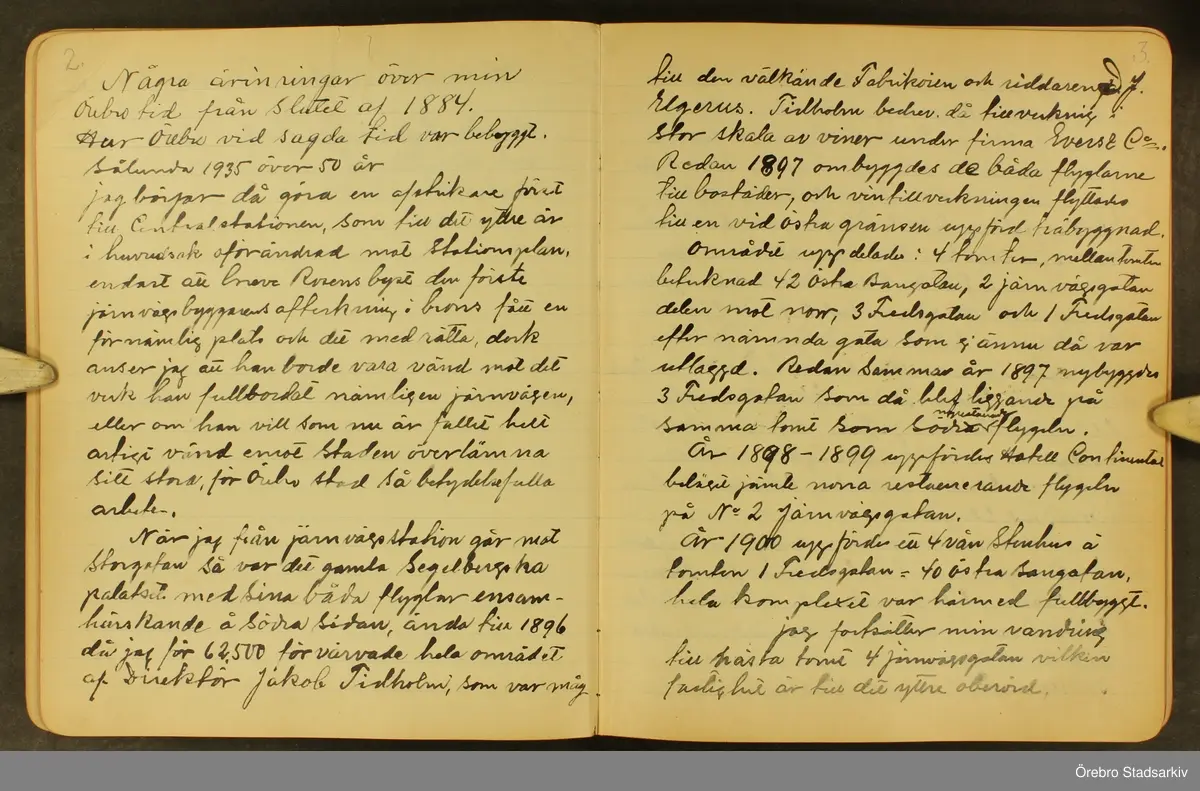 2.
Några ärinringar över min
Örebro tid från slutet af 1884.
Hur Örebro vid sagda tid var bebyggt.
Sålunda 1935 över 50 år
jag börjar då göra en afstickare först
till Centralstationen, som till det yttre är
i huvudsak oförändrad mot Stationsplan,
endast att Greve Rosens byst den förste
järnvägsbyggarens afteckning i brons fått en
förnämlig plats och det med rätta, dock
anser jag att han borde vara vänd mot det
verk han fullbordat nämligen järnvägen,
eller om han vill som nu är fallet helt
artigt vänd emot staden överlämna
sitt stora, för Örebro stad så betydelsefulla
arbete.
När jag från järnvägsstation går mot
Storgatan så var det gamla Segelbergska
palatset med sina båda flyglar ensam-
härskande å södra sidan, ända till 1896
då jag för 62,500 förvärvade hela området
af Direktör Jakob Tidholm, som var måg
3.
till den välkände Fabrikören och riddaren J.
Elgerus. Tidholm bedrev då tillverkning i
stor skala av viner under firma Evers & Co.
Redan 1897 ombyggdes de båda flyglarne
till bostäder, och vintillverkningen flyttades
till en vid östra gränsen uppförd träbyggnad.
Området uppdelades i 4 tomter, mellantomten
betecknad 42 Östra Bangatan, 2 järnvägsgatan
delen mot norr, 3 Fredsgatan och 1 Fredsgatan
efter nämnda gata som ej ännu då var
utlaggd. Redan samma år 1897 nybyggdes
3 Fredsgatan som då blef liggande på
samma tomt som södra nuvarande flygeln.
År 1898-1899 uppfördes Hotell Continental
beläget jämte norra restaurerande flygeln
på No 2 Järnvägsgatan.
År 1900 uppfördes ett 4 vån Stenhus å
tomten 1 Fredsgatan = 40 östra Bangatan,
hela komplexet var härmed fullbyggt.
jag fortsätter min vandring
till nästa tomt 4 järnvägsgatan vilken
fastighet är till det yttre oberörd.
Örebro Stadsarkiv